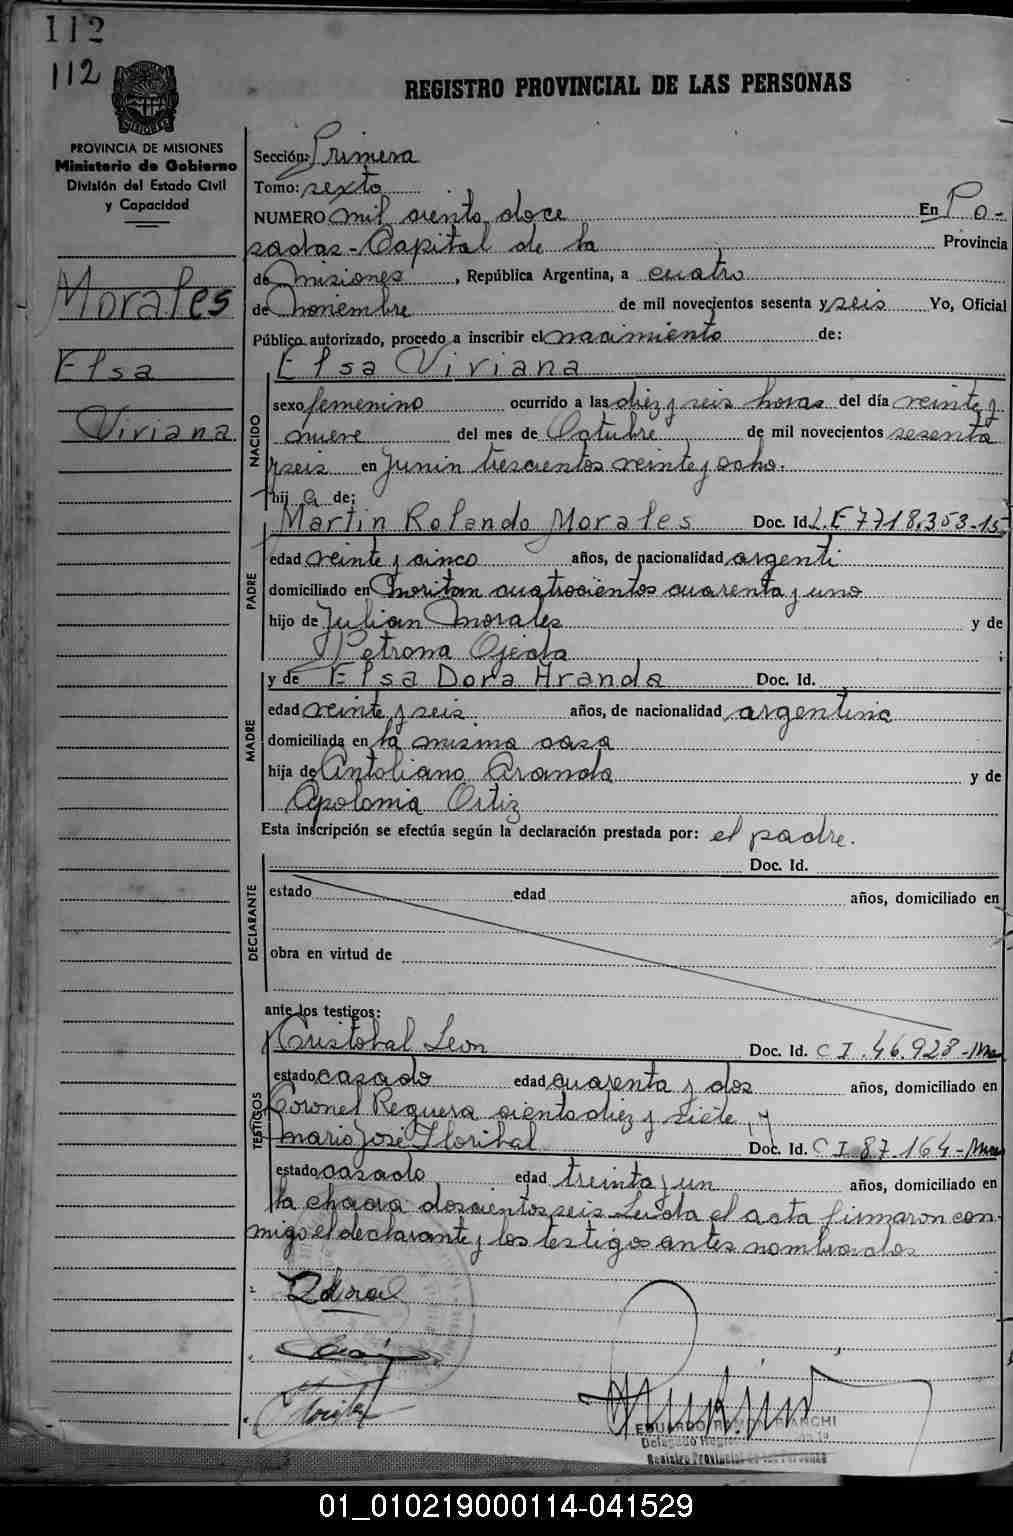 112
112
REGISTRO PROVINCIAL DE LAS PERSONAS
MISIONES
PROVINCIA DE MISIONES
Ministerio de Gobierno
División del Estado Civil
y Capacidad
Morales
Elsa
Viviana
Sección: Primera
Tomo: sexto
NUMERO mil ciento doce En Po-
sadas - Capital de la Provincia
de Misiones, República Argentina, a cuatro
de Noviembre de mil novecientos sesenta y seis Yo, Oficial
Público autorizado, procedo a inscribir el nacimiento de:
NACIDO
Elsa Viviana
sexo femenino ocurrido a las diez y seis horas del día veinte y
nueve del mes de Octubre de mil novecientos sesenta
y seis en Junin trescientos veinte y ocho.
hij a de:
PADRE
Martin Rolando Morales Doc. Id. L.E 7.718.353-15
edad veinte y cinco años, de nacionalidad argenti
domiciliado en cuatrocientos cuarenta y uno
hijo de Julian Morales y de
Petrona Ojeda ;
MADRE
y de Elsa Dora Aranda Doc. Id.
edad veinte y seis años, de nacionalidad argentina
domiciliada en la misma casa
hija de Antoliano Aranda y de
Apolonia Ortiz
Esta inscripción se efectúa según la declaración prestada por: el padre.
DECLARANTE
Doc. Id.
estado edad años, domiciliado en
obra en virtud de
ante los testigos:
TESTIGOS
Cristobal Leon Doc. Id. C I. 46.928-Mnes
estado casado edad cuarenta y dos años, domiciliado en
Coronel Reguera ciento diez y siete, y
Mario José Doc. Id. C I 87.164-Mnes
estado casado edad treinta y un años, domiciliado en
la chacra doscientos seis Leida el acta firmaron con-
migo el declarante y los testigos antes nombrados
EDUARDO RAMON BIANCHI
Delegado
Registro Provincial de las Personas
01_010219000114-041529